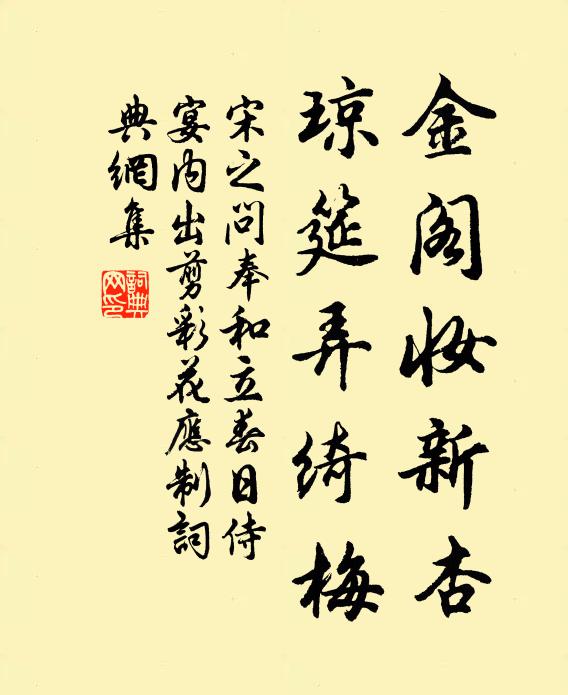 金阁妆新杏
琼筵弄绮梅
宋之问奉和立春日侍
宴内出剪彩花應制詞
典網集
詞典網印